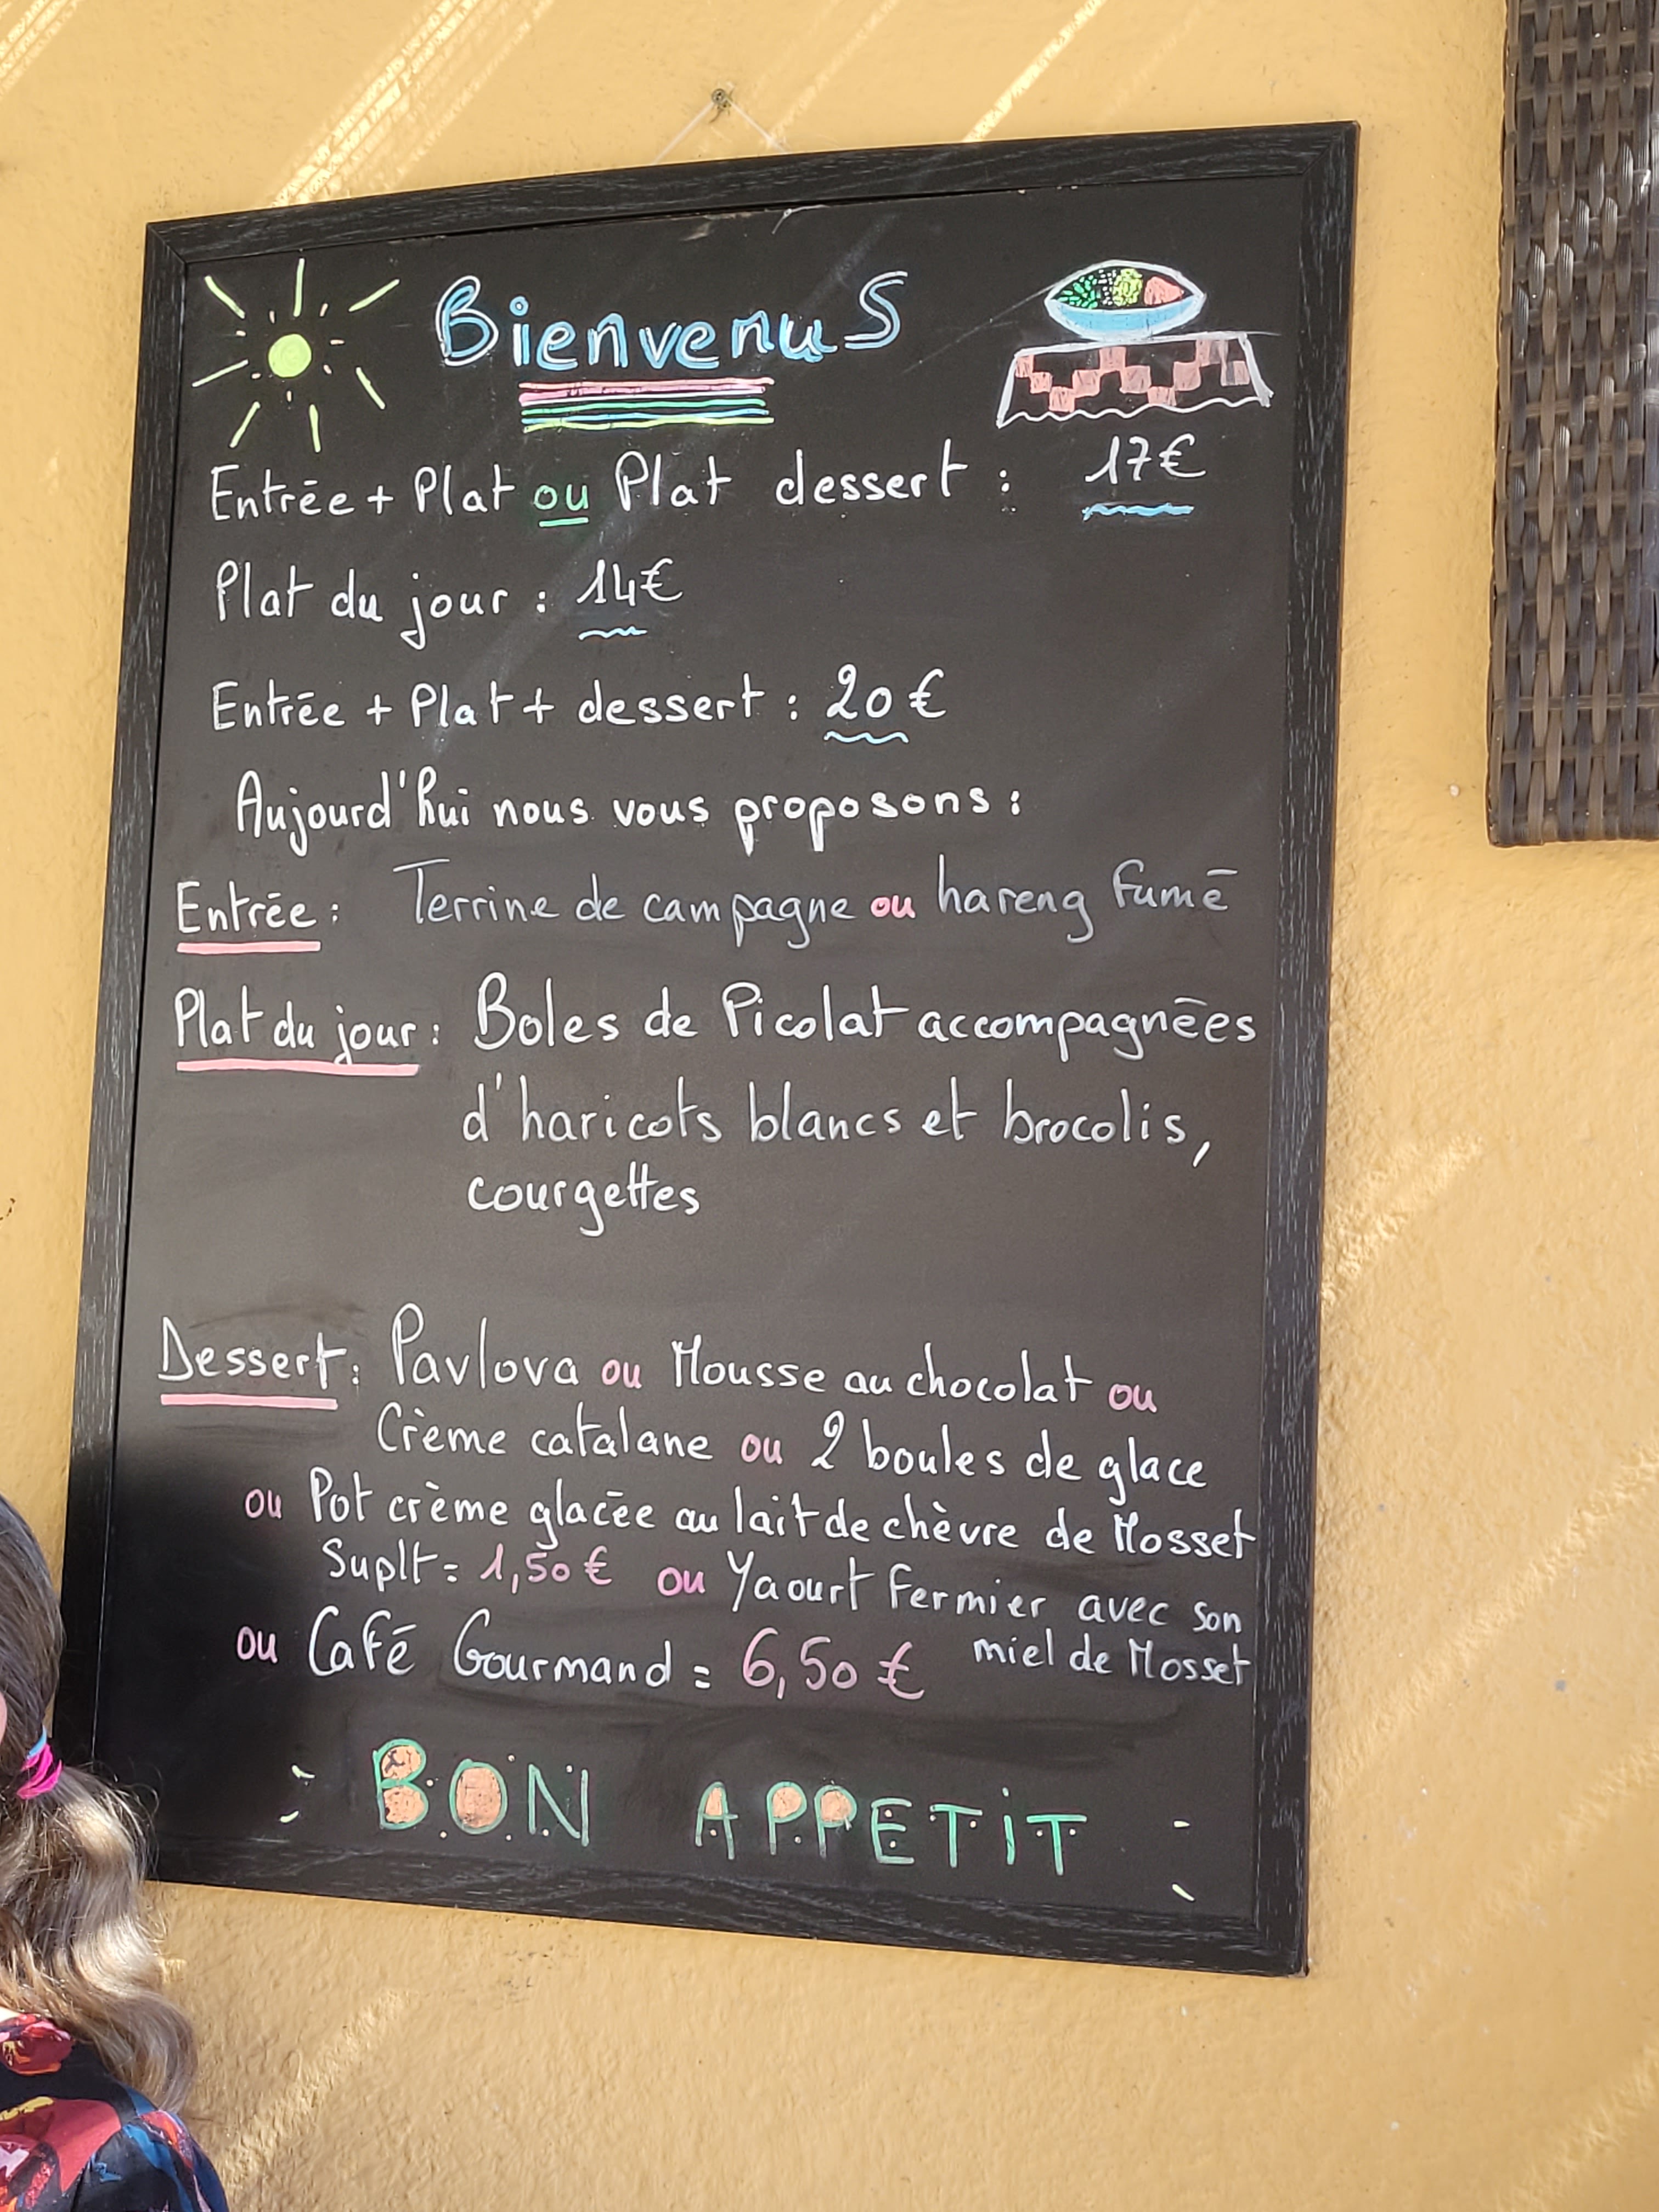 BienvenuS
Entrée + Plat ou Plat dessert : 17€
Plat du jour : 14€
Entrée + Plat + dessert : 20€
Aujourd'hui nous vous proposons :
Entrée : Terrine de campagne ou hareng fumé
Plat du jour : Boles de Picolat accompagnées
d'haricots blancs et brocolis,
courgettes
Dessert : Pavlova ou Mousse au chocolat ou
Crème catalane ou 2 boules de glace
ou Pot crème glacée au lait de chèvre de Mosset
Suplt = 1,50€ ou Yaourt Fermier avec son
miel de Mosset
ou Café Gourmand = 6,50€
BON APPETIT